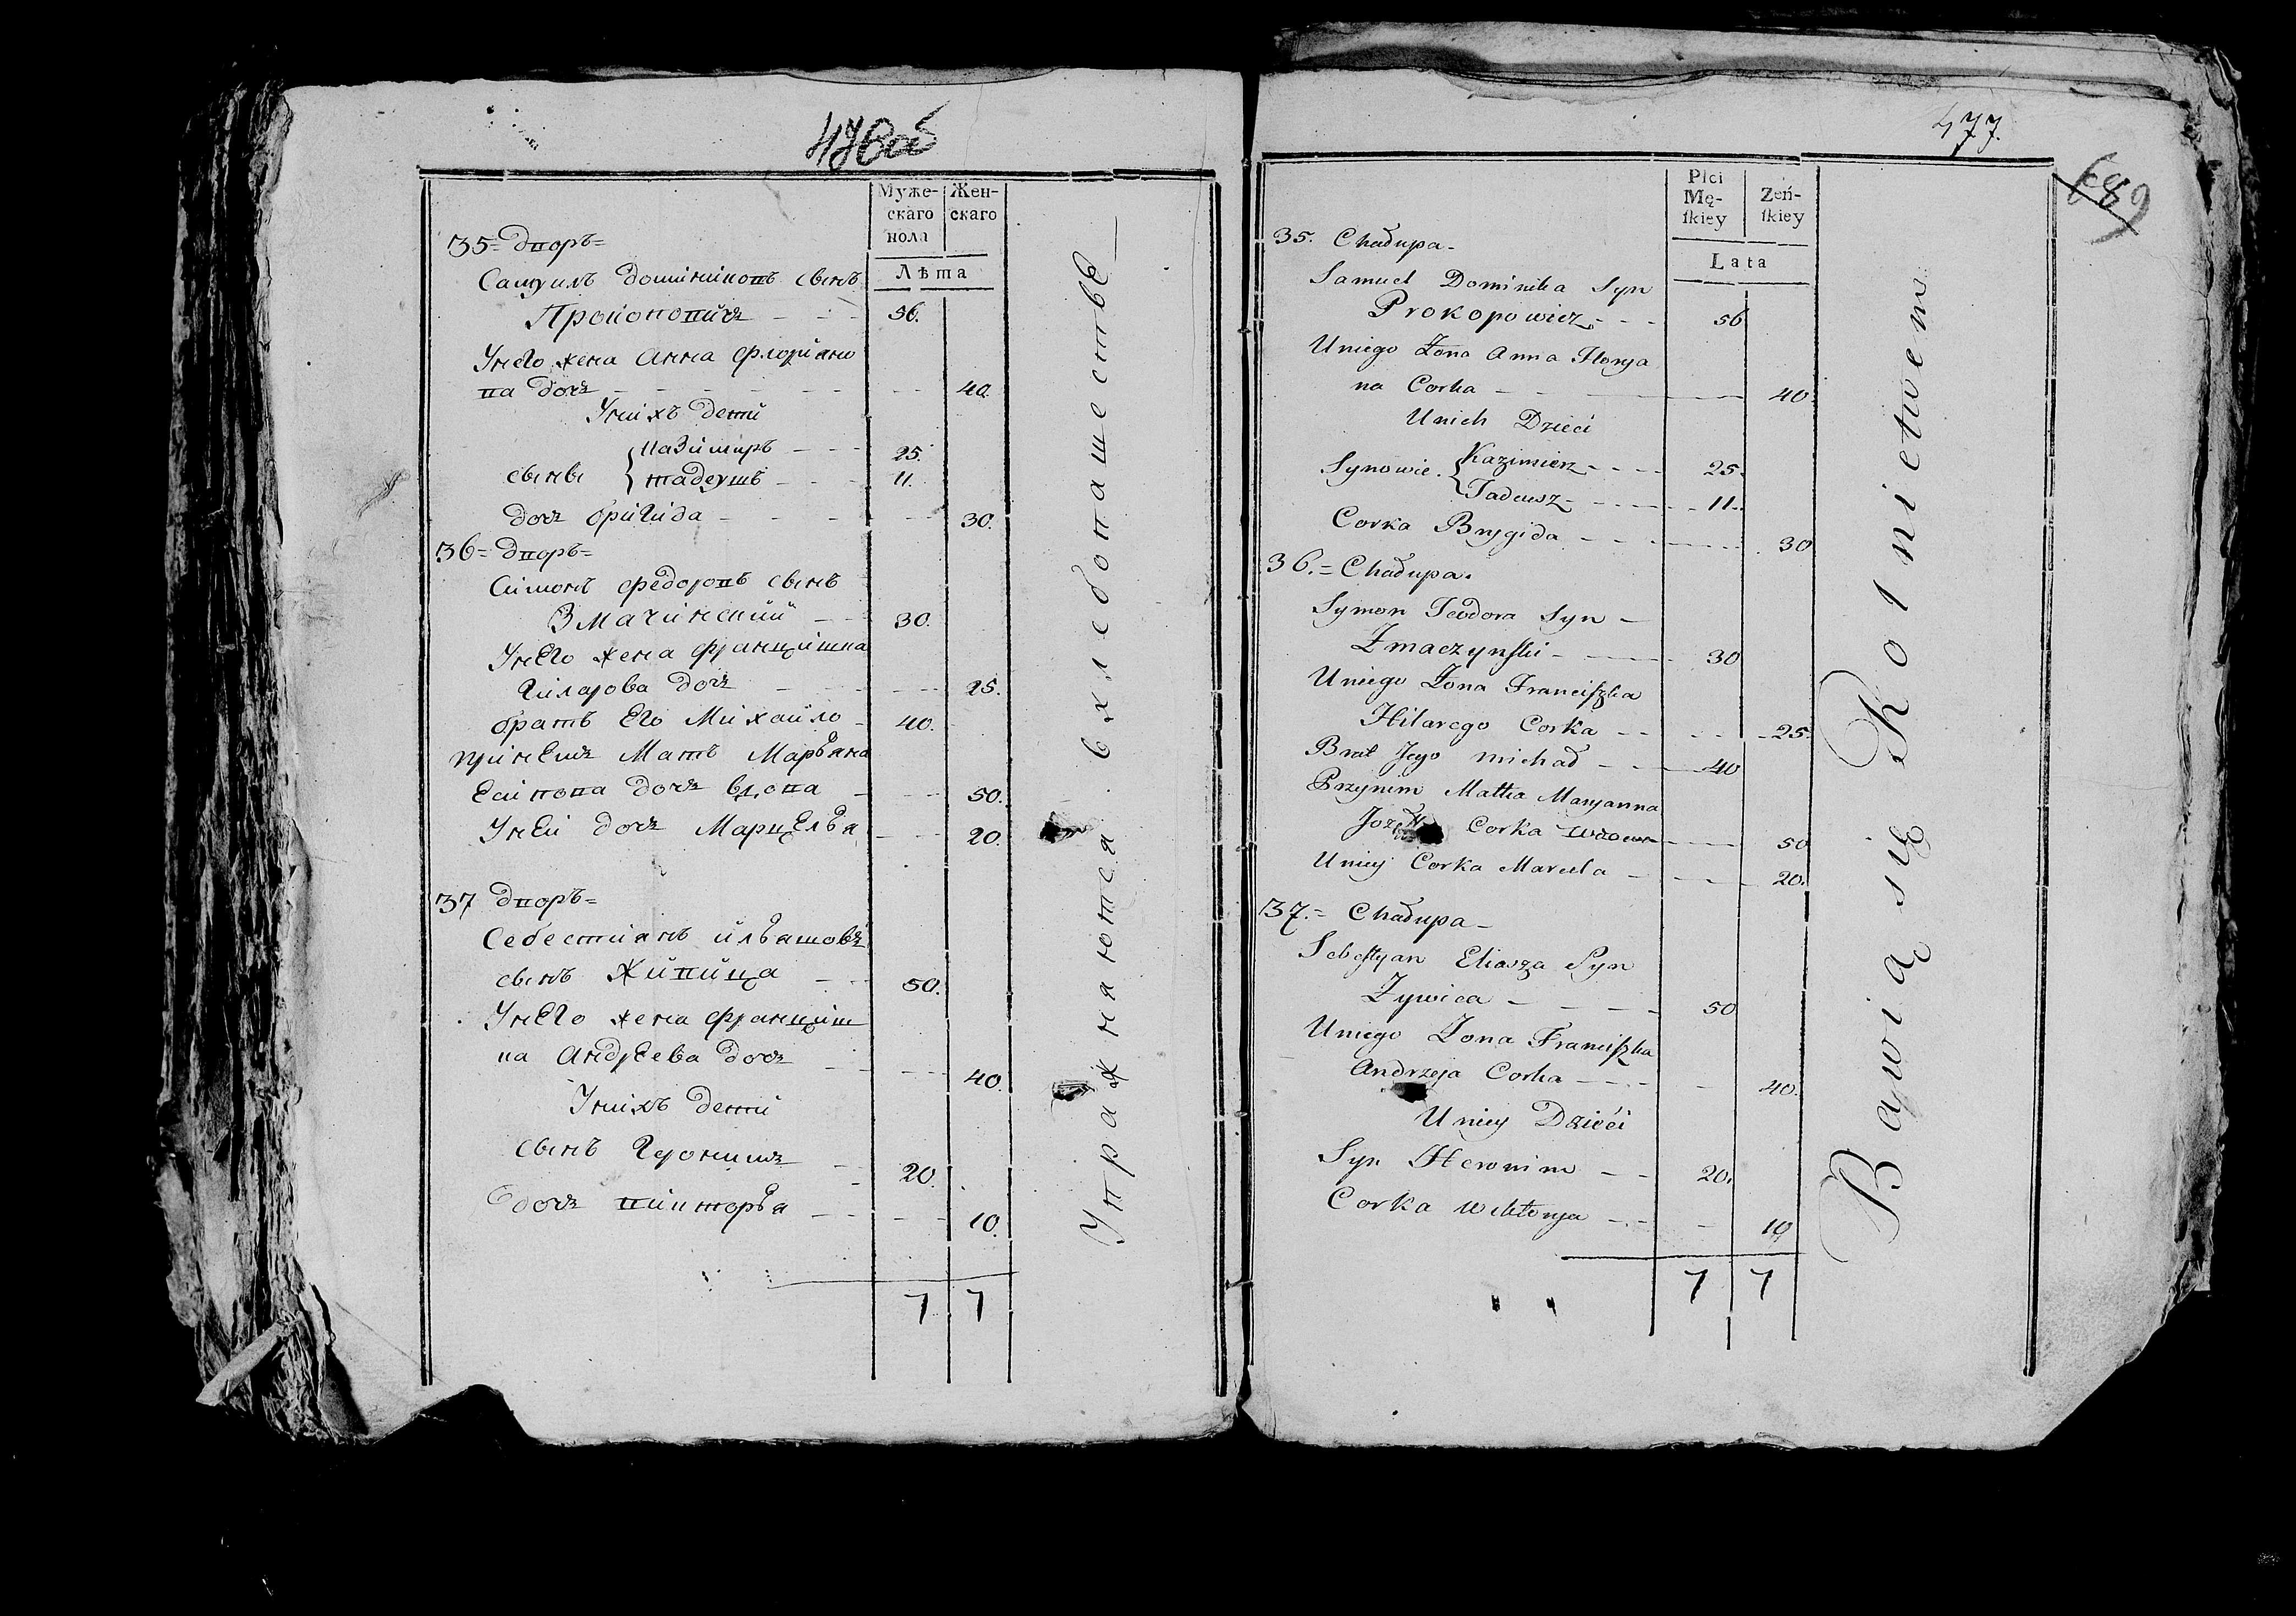 476об
Муже-
скаго
пола
Жен-
скаго
Лѣта
35= Дворъ=
Самуилъ Доминиковъ сынъ
Прокоповичъ - - - 56.
Унего жена Анна Флоріано
ва дочъ - - - 40.
Унихъ дети
сыны { Казимиръ - - - 25.
тадеушъ - - - 11.
дочъ бригида - - - 30.
36= Дворъ=
Симонъ Федоровъ сынъ
Змачинский - - 30.
Унего жена Францишка
Гилярова дочъ - - - 25.
братъ Его Михайло - 40.
принемъ Мать Марьяна
Есипова дочъ вдова - - - 50.
Уней дочъ Марцелья - - - 20.
37 Дворъ=
Себестиянъ ильяшовъ
сынъ Живица - - 50.
Унего жена Францыш
ка Андреева дочъ - - - 40.
Унихъ дети
сынъ Геронимъ - - 20.
дочъ викторья - - - 10.
7 7
Упражняются в хлебопашестве
477.
689
Plci
Mę-
ſkiey
Zeń-
ſkiey
Lata
35. Chałupa-
Samuel Dominika Syn
Prokopowicz - - - 56
Uniego Żona Anna Florya
na Corka - - - 40.
Unich Dzieci
Synowie. { Kazimierz - - - 25.
Tadeusz - - - 11.
Corka Brygida - - - 30
36.= Chałupa.
Symon Teodora Syn -
Żmaczynſki - - - 30
Uniego Żona Franciſzka
Hilarego Corka - - - 25.
Brat Jego Michał - - - 40
Przynim Matka Maryanna
Corka wdowa - - - 50
Uniey Corka Marcela - - - 20.
37.= Chałupa-
Sebeſtyan Eliasza Syn
Żywica - - - 50
Uniego Żona Franciſzka
Andrzeja Corka - - - 40.
Uniey Dzieci
Syn Heronim - - 20.
Corka Wiktorya - - - 10
7 7
Bawią się Rolnictwem